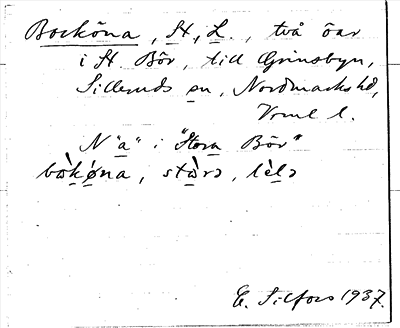 Bocköna, St., L., två öar
i St. Bör, till Grinsbyn,
Silleruds sn, Nordmarks hd,
Vrml l.
N "a" i "Stora Bör"
bòkǿna, stàrə, lèlə
E. Silfors 1937.